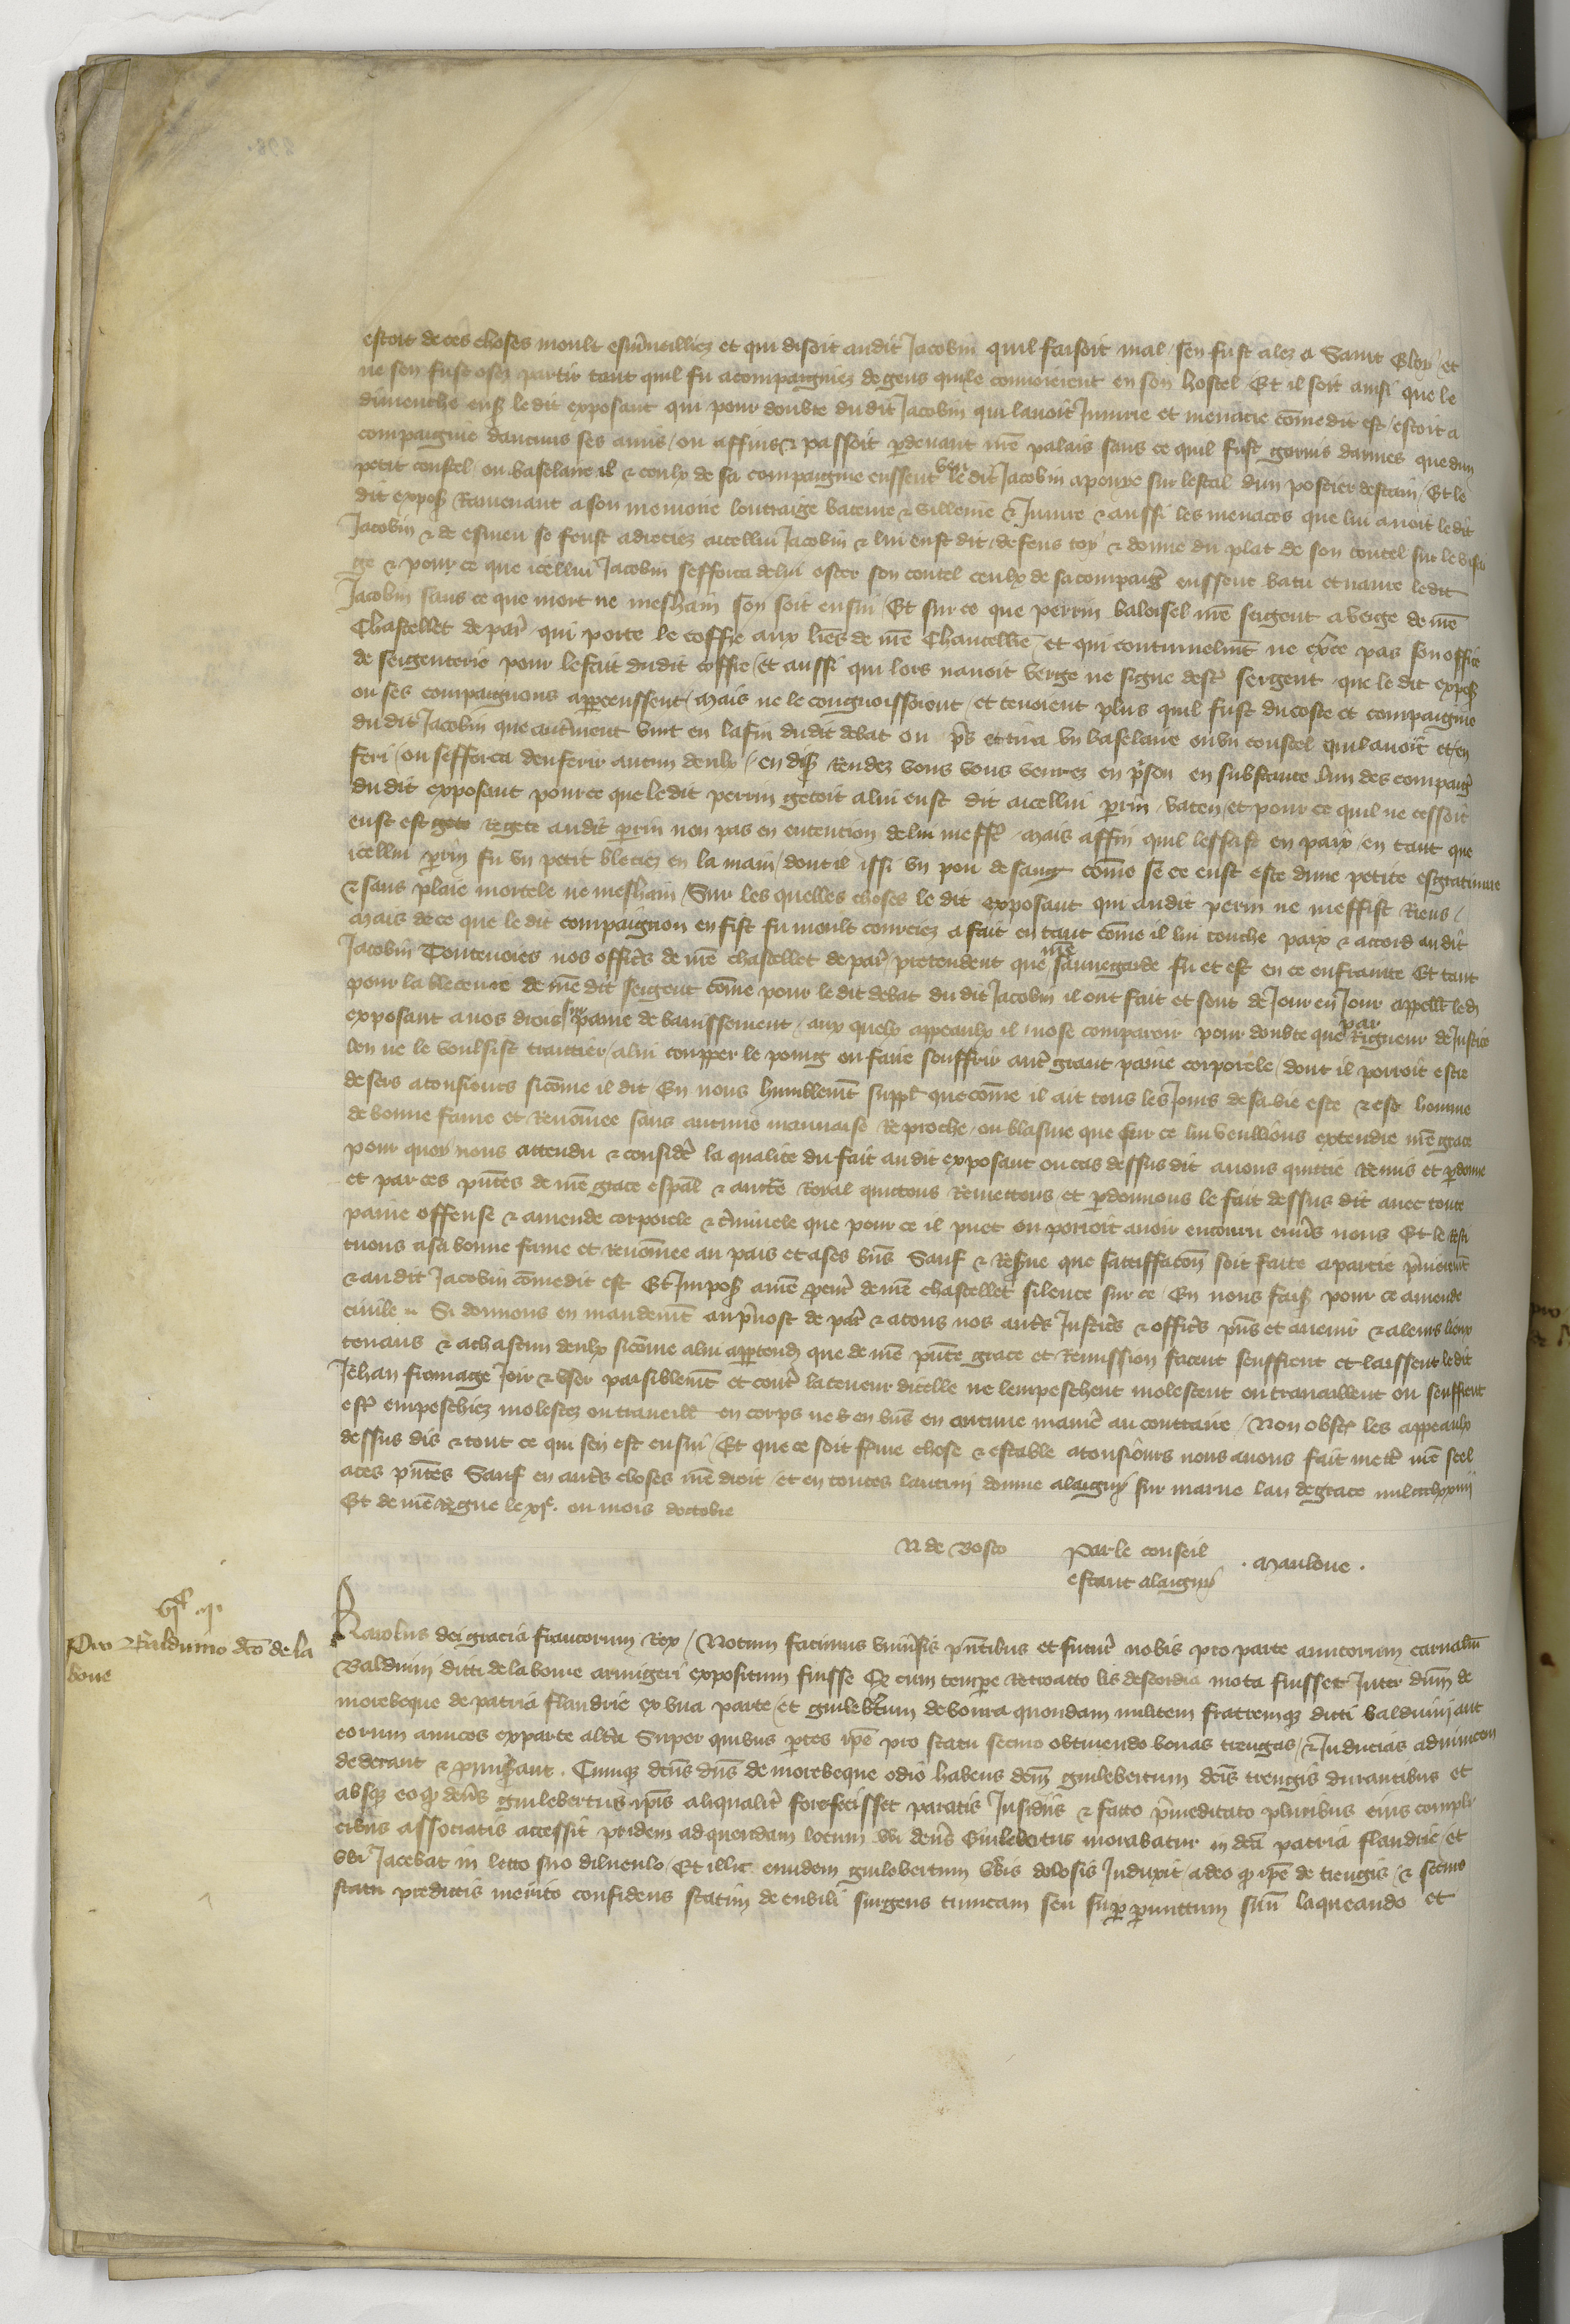 estoit de ces choses moult esmueilliez et qui disoit audit Jacobin quil faisoit mal / sen fust alez a Saint Eloy / et
ne sen fust osez partir tant quil fu acompaigniez de gens quile convoierent en son hostel Et il soit ainsi que le
dimenche ens le dit exposant qui pour doubte dudit Jacobin qui lavoit Iniurie et menacie come dit est / estoit a
compaignie daucuns ses amis / ou affins & passoit pdevant nre palais sans ce quil fust garnis darmes que dun
petit coustel / ou baselaire il & ceulx de sa compaignie eussent veu le dit Jacobin apouye sur lestal dun potier destain / Et le
dit expos Ramenant a son memoire loutraige bateure & villenie & Iniure & aussi les menaces que lui avoit le dit
Jacobin & de esmeu se feust adreciez aicellui Jacobin & lui eust dit / defens toy & donne du plat de son coutel sur le visa
ge & pour ce que icellui Jacobin sefforca delui oster son coutel ceulx de sa compaig eussent batu et navre ledit
Jacobin sans ce que mort ne meshain sen soit ensui / Et sur ce que perrin baloisel nre sergent a verge de nre
Chastellet de par qui porte le coffre aux lres de nre Chancellie / et qui continuelmt ne exce pas son office
de sergenterie pour le fait dudit coffre / et aussi qui lors navoit verge ne signe dest sergent que le dit expos
ou ses compaignons apceussent / mais ne le congnoissoient / et tenoient plus quil fust du coste et compaignie
dudit Jacobin que autment vint en la fin dudit debat ou ps et tira un baselaire ou un coustel quil avoit et en
feri / ou sefforca den ferir aucun deulx / en dis Rendez vous vous venrez en pson en substance lun des compaig
du dit exposant pour ce que le dit perrin getoit alui eust dit aicellui prin / vaten / et pour ce quil ne cessoit
eust est gete Regete audit prin non pas en entention delui meff / mais affin quil lessast en paix / en tant que
icellui prin fu un petit bleciez en la main / dont il issi un pou de sang come se ce eust este dune petite esgratinure
& sans plaie mortele ne meshain / Sur les quelles choses le dit exposant qui audit perrin ne meffist Riens /
mais de ce que le dit compaignon en fist fu moult courciez a fait en tant come il lui touche paix & accord audit
Jacobin Toutevoies nos offics de nre chastellet de par pretendent que nre sauvegarde fu et est en ce enfrainte Et tant
pour la bleceure de nre dit sergent come pour le dit debat du dit Jacobin il ont fait et font de Jour en Jour appell led
exposant a nos drois sur paine de banissement / aux quelx appeaulx il nose comparoir pour doubte que par Rigueur de Justice
len ne le voulsist traittier / alui coupper le poing ou faire souffrir aut grant paine corporele / dont il porroit estre
desers atousiours sicome il dit En nous humblemt suppl que come il ait tous les Jours de sa vie este & est homme
de bonne fame et Renomee sans aucune mauvaise Reproche / ou blasme que sur ce lui veullions extendre nre grace
pour quoy nous attendu & consider la qualite du fait au dit exposant ou cas dessus dit avons quittie Remis et pdonne
et par ces pntes de nre grace espal & aucte Royal quittons Remettons et pdonnons le fait dessus dit avec toute
paine offense & amende corporele & cminele que pour ce il puet ou porroit avoir encouru envs nous Et le Resti
tuons asa bonne fame et Renomee au pais et ases bns Sauf & Resve que satisfaction soit faite apartie pmieremt
& audit Jacobin come dit est Et Impos a nre pcur de nre chastellet silence sur ce / En nous fais pour ce amende
civile Si donnons en mandemt au pvost de par & atous nos auts Justics & offics pns et avenir & aleurs lieux
tenans & achascun deulx sicome alui apptend que de nre pnte grace et Remission facent seuffrent et laissent le dit
Jehan fromage Joir & user paisiblemt et cont la teneur dicelle ne lempeschent molestent ou travaillent ou seuffrent
est empeschiez molestez ou travaill en corps ne en bns en aucune manie au contraire / Non obst les appeaulx
dessus dis & tout ce qui sen est ensui / Et que ce soit fme chose & estable atousiours nous avons fait mett nre seel
aces pntes Sauf en auts choses nre droit / et en toutes lautrui donne alaigny sur marne lan de grace milccclxxiiii
Et de nre Regne le xie. ou mois doctobre
N de Bosco Par le conseil
estant alaigny . Maulone .
vixx .xi.
Pro Balduino dco de la
bone
Karolus dei gracia francorum Rex / Notum facimus univsis pntibus et futur nobis pro parte amicorum carnaliu
Balduini dicti de la bone armigeri expositum fuisse Q cum tempe Retroacto lis descordia mota fuisset Inter dnm de
morebeque de patria flandrie ex una parte / et guilebtum de boura quondam militem fratremq dicti balduini aut
eorum amicos exparte alta Super quibus ptes ipe pro statu secuo obtinendo bonas treugas / & Inducias adinvicem
dederant & pmisant . Cumq dcus dns de morebeque odio habens dcm guilebertum dcis treugis durantibus et
absq eo q dcus guilebertus ipis aliqualit forefecisset paratis Insidiis & facto pmeditato pluribus eius compli
cibus associatis accessit pridem ad quendam locum ubi dcus Guilebertus morabatur in dca patria flandrie / et
ubi Jacebat in lecto suo diluculo / Et illic eundem guilebertum vbis dolosis Induxit / adeo q ipe de treugis / & secuo
statu predictis merito confidens statim de cubili surgens tunicam seu sup punctum suu laqueando et